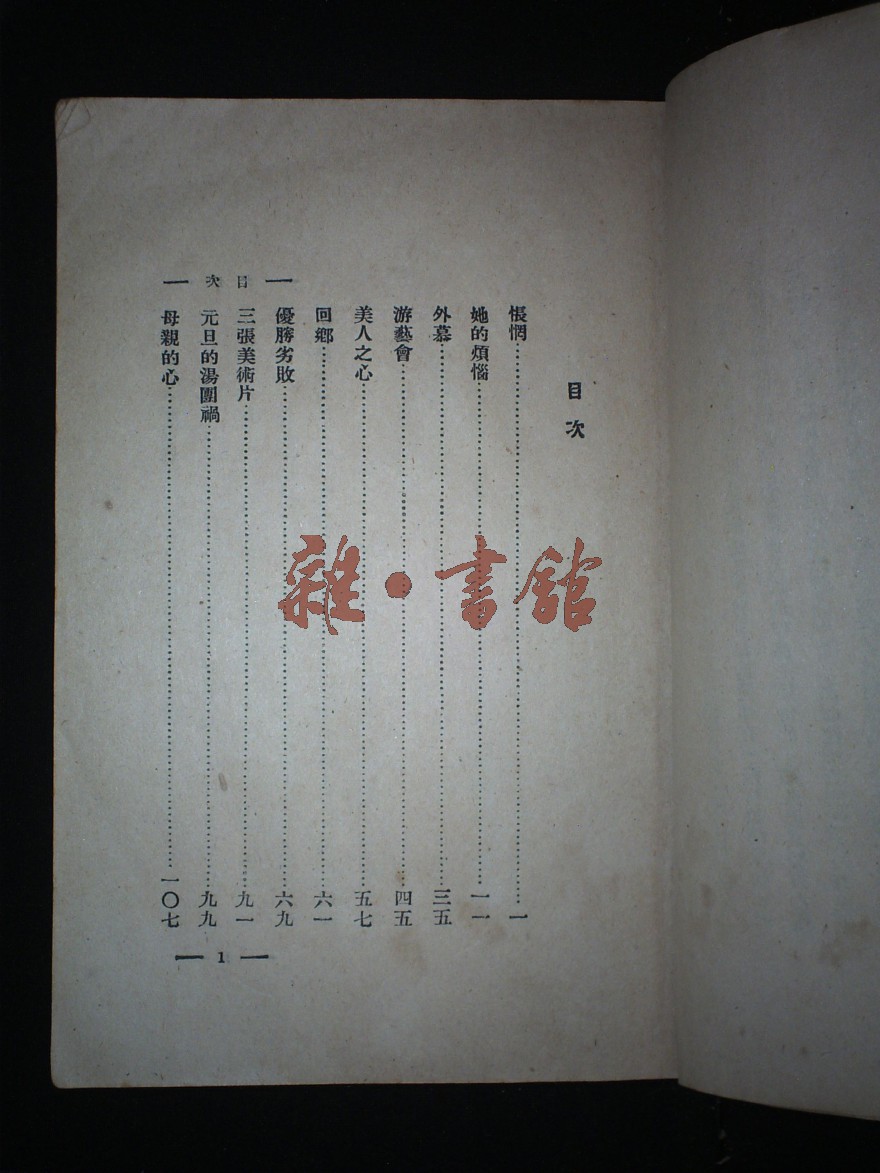 目次
悵惘……一
她的煩惱……一一
外慕……三五
游藝會……四五
美人之心……五七
回鄉……六一
優勝劣敗……六九
三張美術片……九一
元旦的湯團禍……九九
母親的心……一〇七
— 目次 —
— 1 —
雜•書館